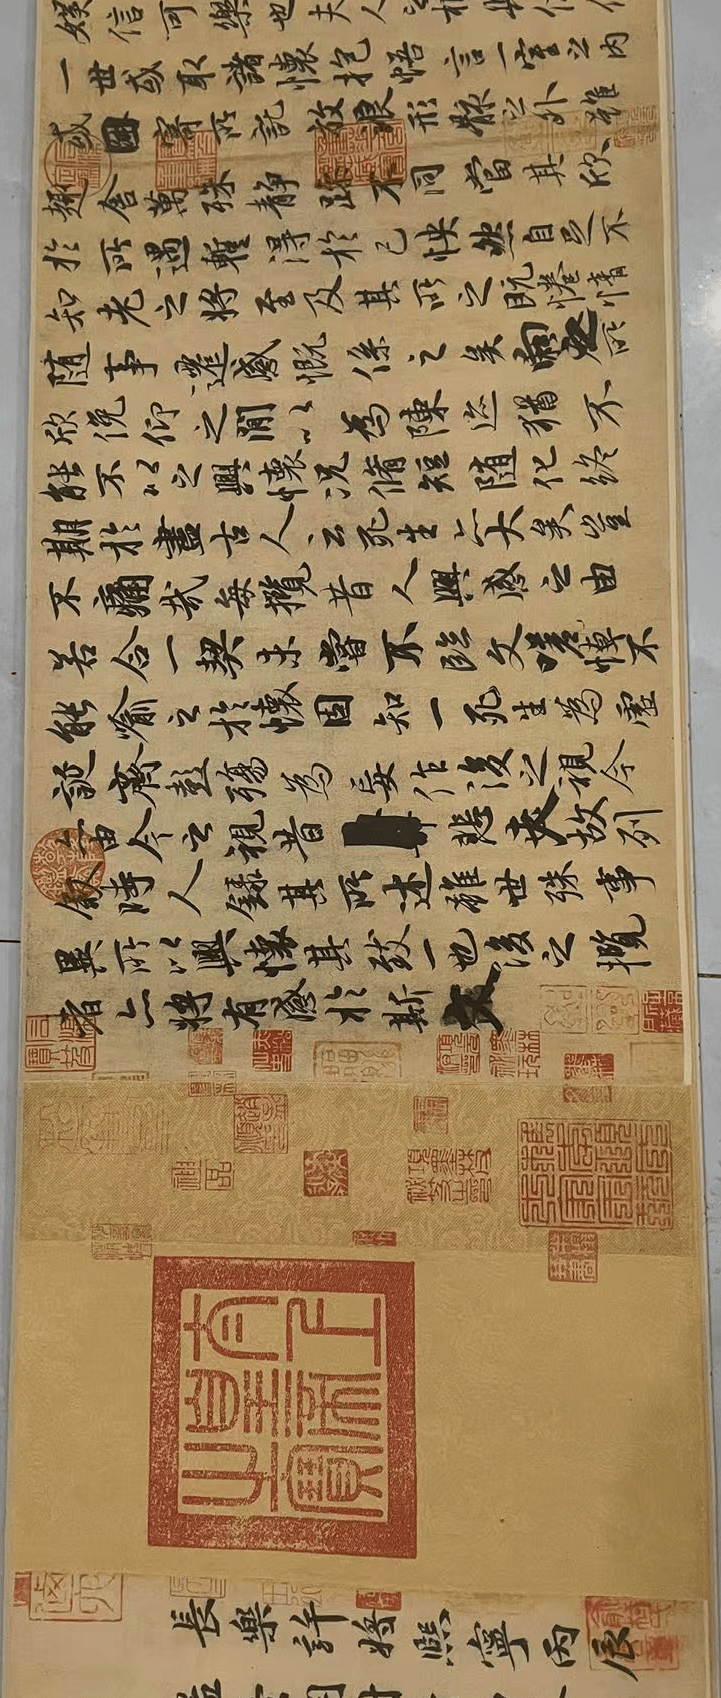 娛信可樂也夫人之相與俯仰
一世或取諸懷抱悟言一室之內
或因寄所託放浪形骸之外雖
趣舍萬殊靜躁不同當其欣
於所遇暫得於己怏然自足不
知老之將至及其所之既惓情
随事遷感慨係之矣向之所
欣俛仰之閒以為陳迹猶不
能不以之興懷況脩短随化終
期於盡古人云死生亦大矣豈
不痛哉每攬昔人興感之由
若合一契未嘗不臨文嗟悼不
能喻之於懷固知一死生為虛
誕齊彭殤為妄作後之視今
亦由今之視昔悲夫故列
敘時人錄其所述雖世殊事
異所以興懷其致一也後之攬
者亦將有感於斯文
太上皇帝之寶
長樂許將熙寧丙辰